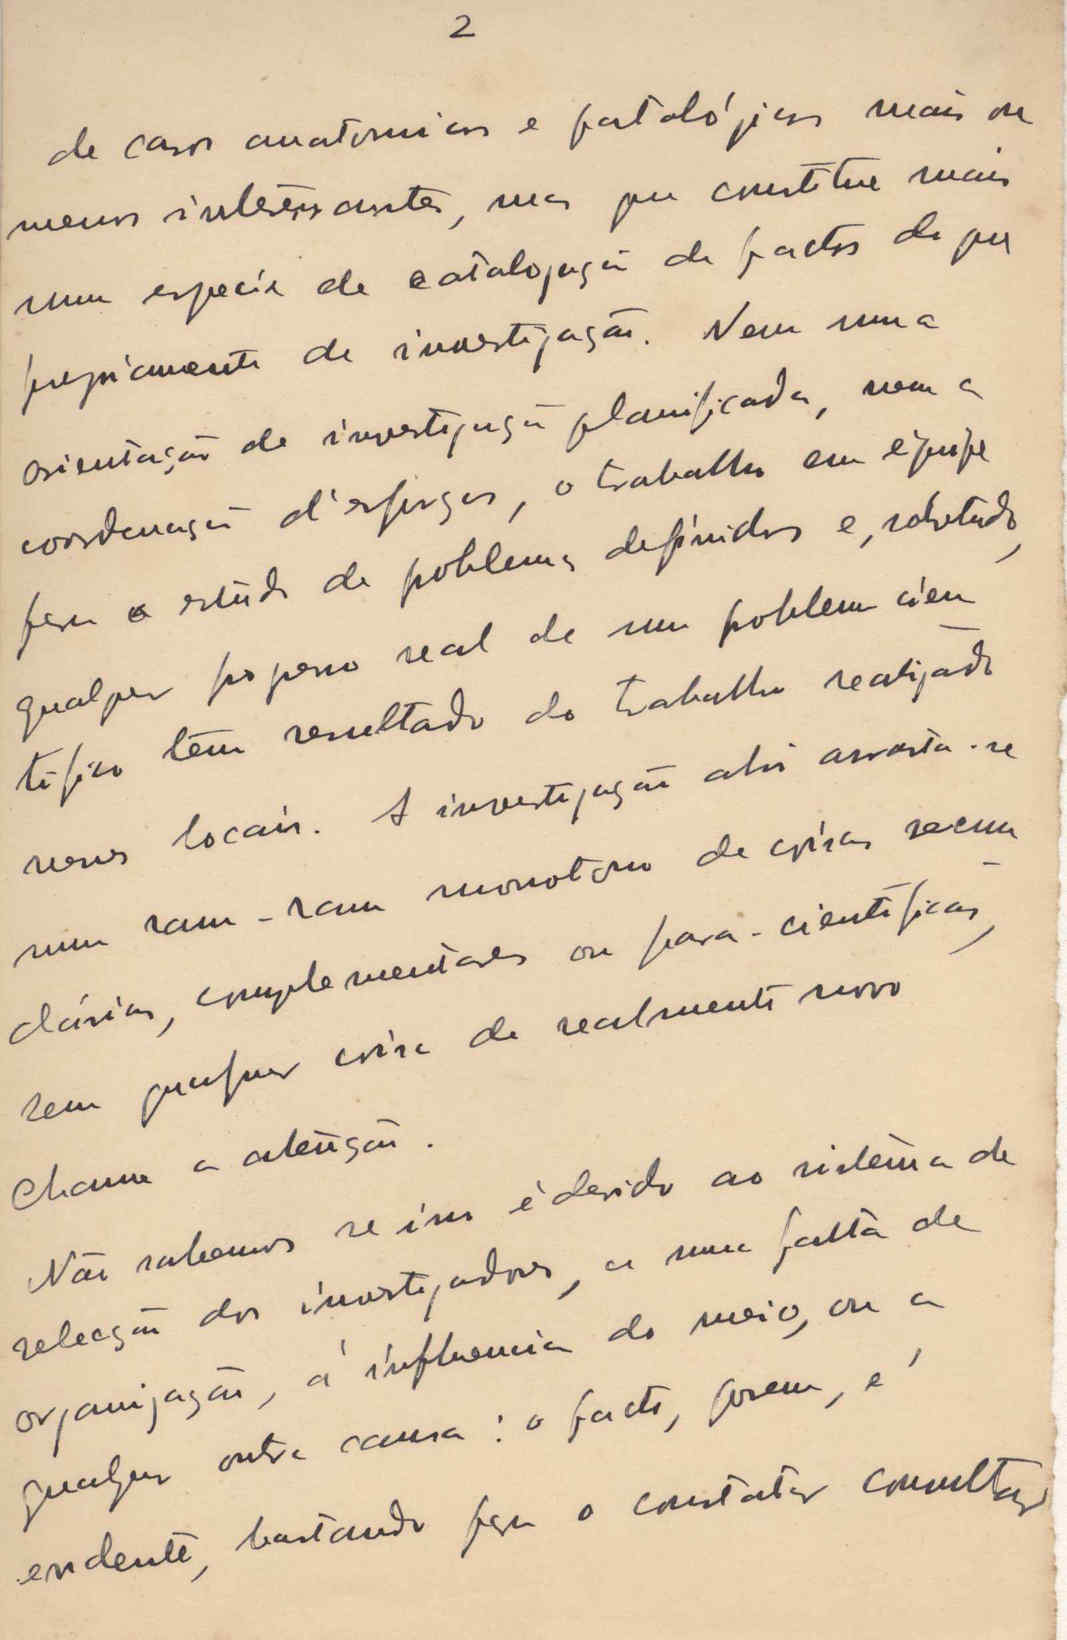 2
de casos anatomicos e patológicos mais ou
menos interessantes, mas que constitue mais
uma especie de catalogação de factos do que
propriamente de investigação. Nem uma
orientação de investigação planificada, nem a
coordenação d'esforços, o trabalho em équipe
para o estudo de problemas definidos e, sobretudo,
qualquer progresso real de um problema cien
tífico têm resultado do trabalho realizado
nesses locais. A investigação ahi arrasta-se
num ram-ram monotono de coisas secun
dárias, complementares ou para-cientificas,
sem qualquer coisa de realmente novo
chame a atenção.
Não sabemos se isso é devido ao sistêma de
selecção dos investigadores, a uma falta de
organização, á influencia do meio, ou a
qualquer outra causa: o facto, porem, é
evidente, bastando para o constatar consultar